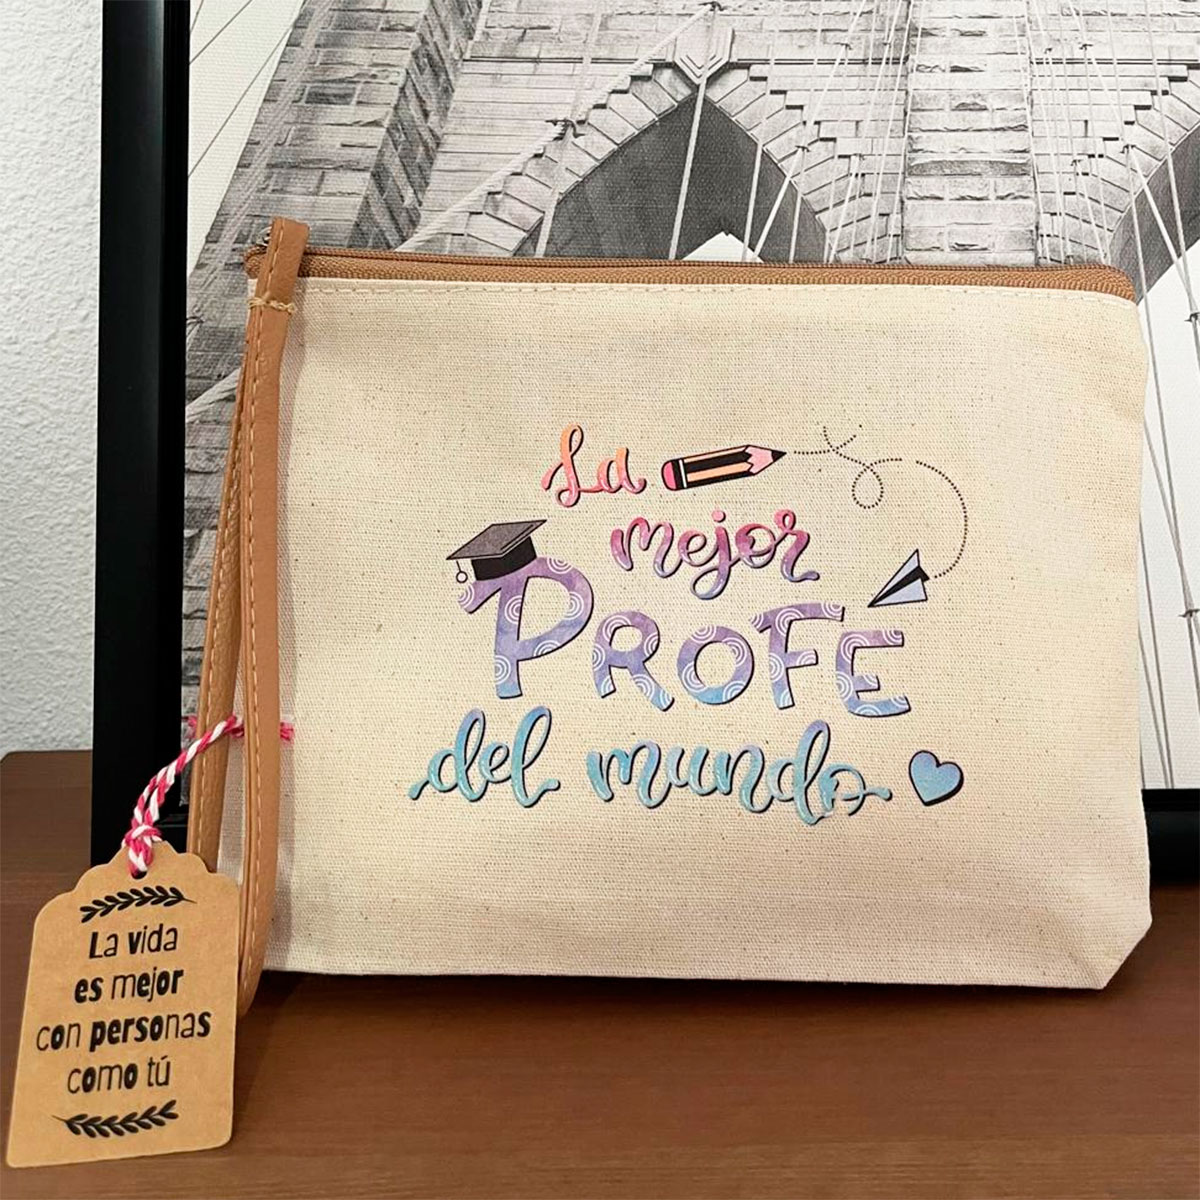 La
mejor
PROFE
del mundo
La vida
es mejor
con personas
como tú